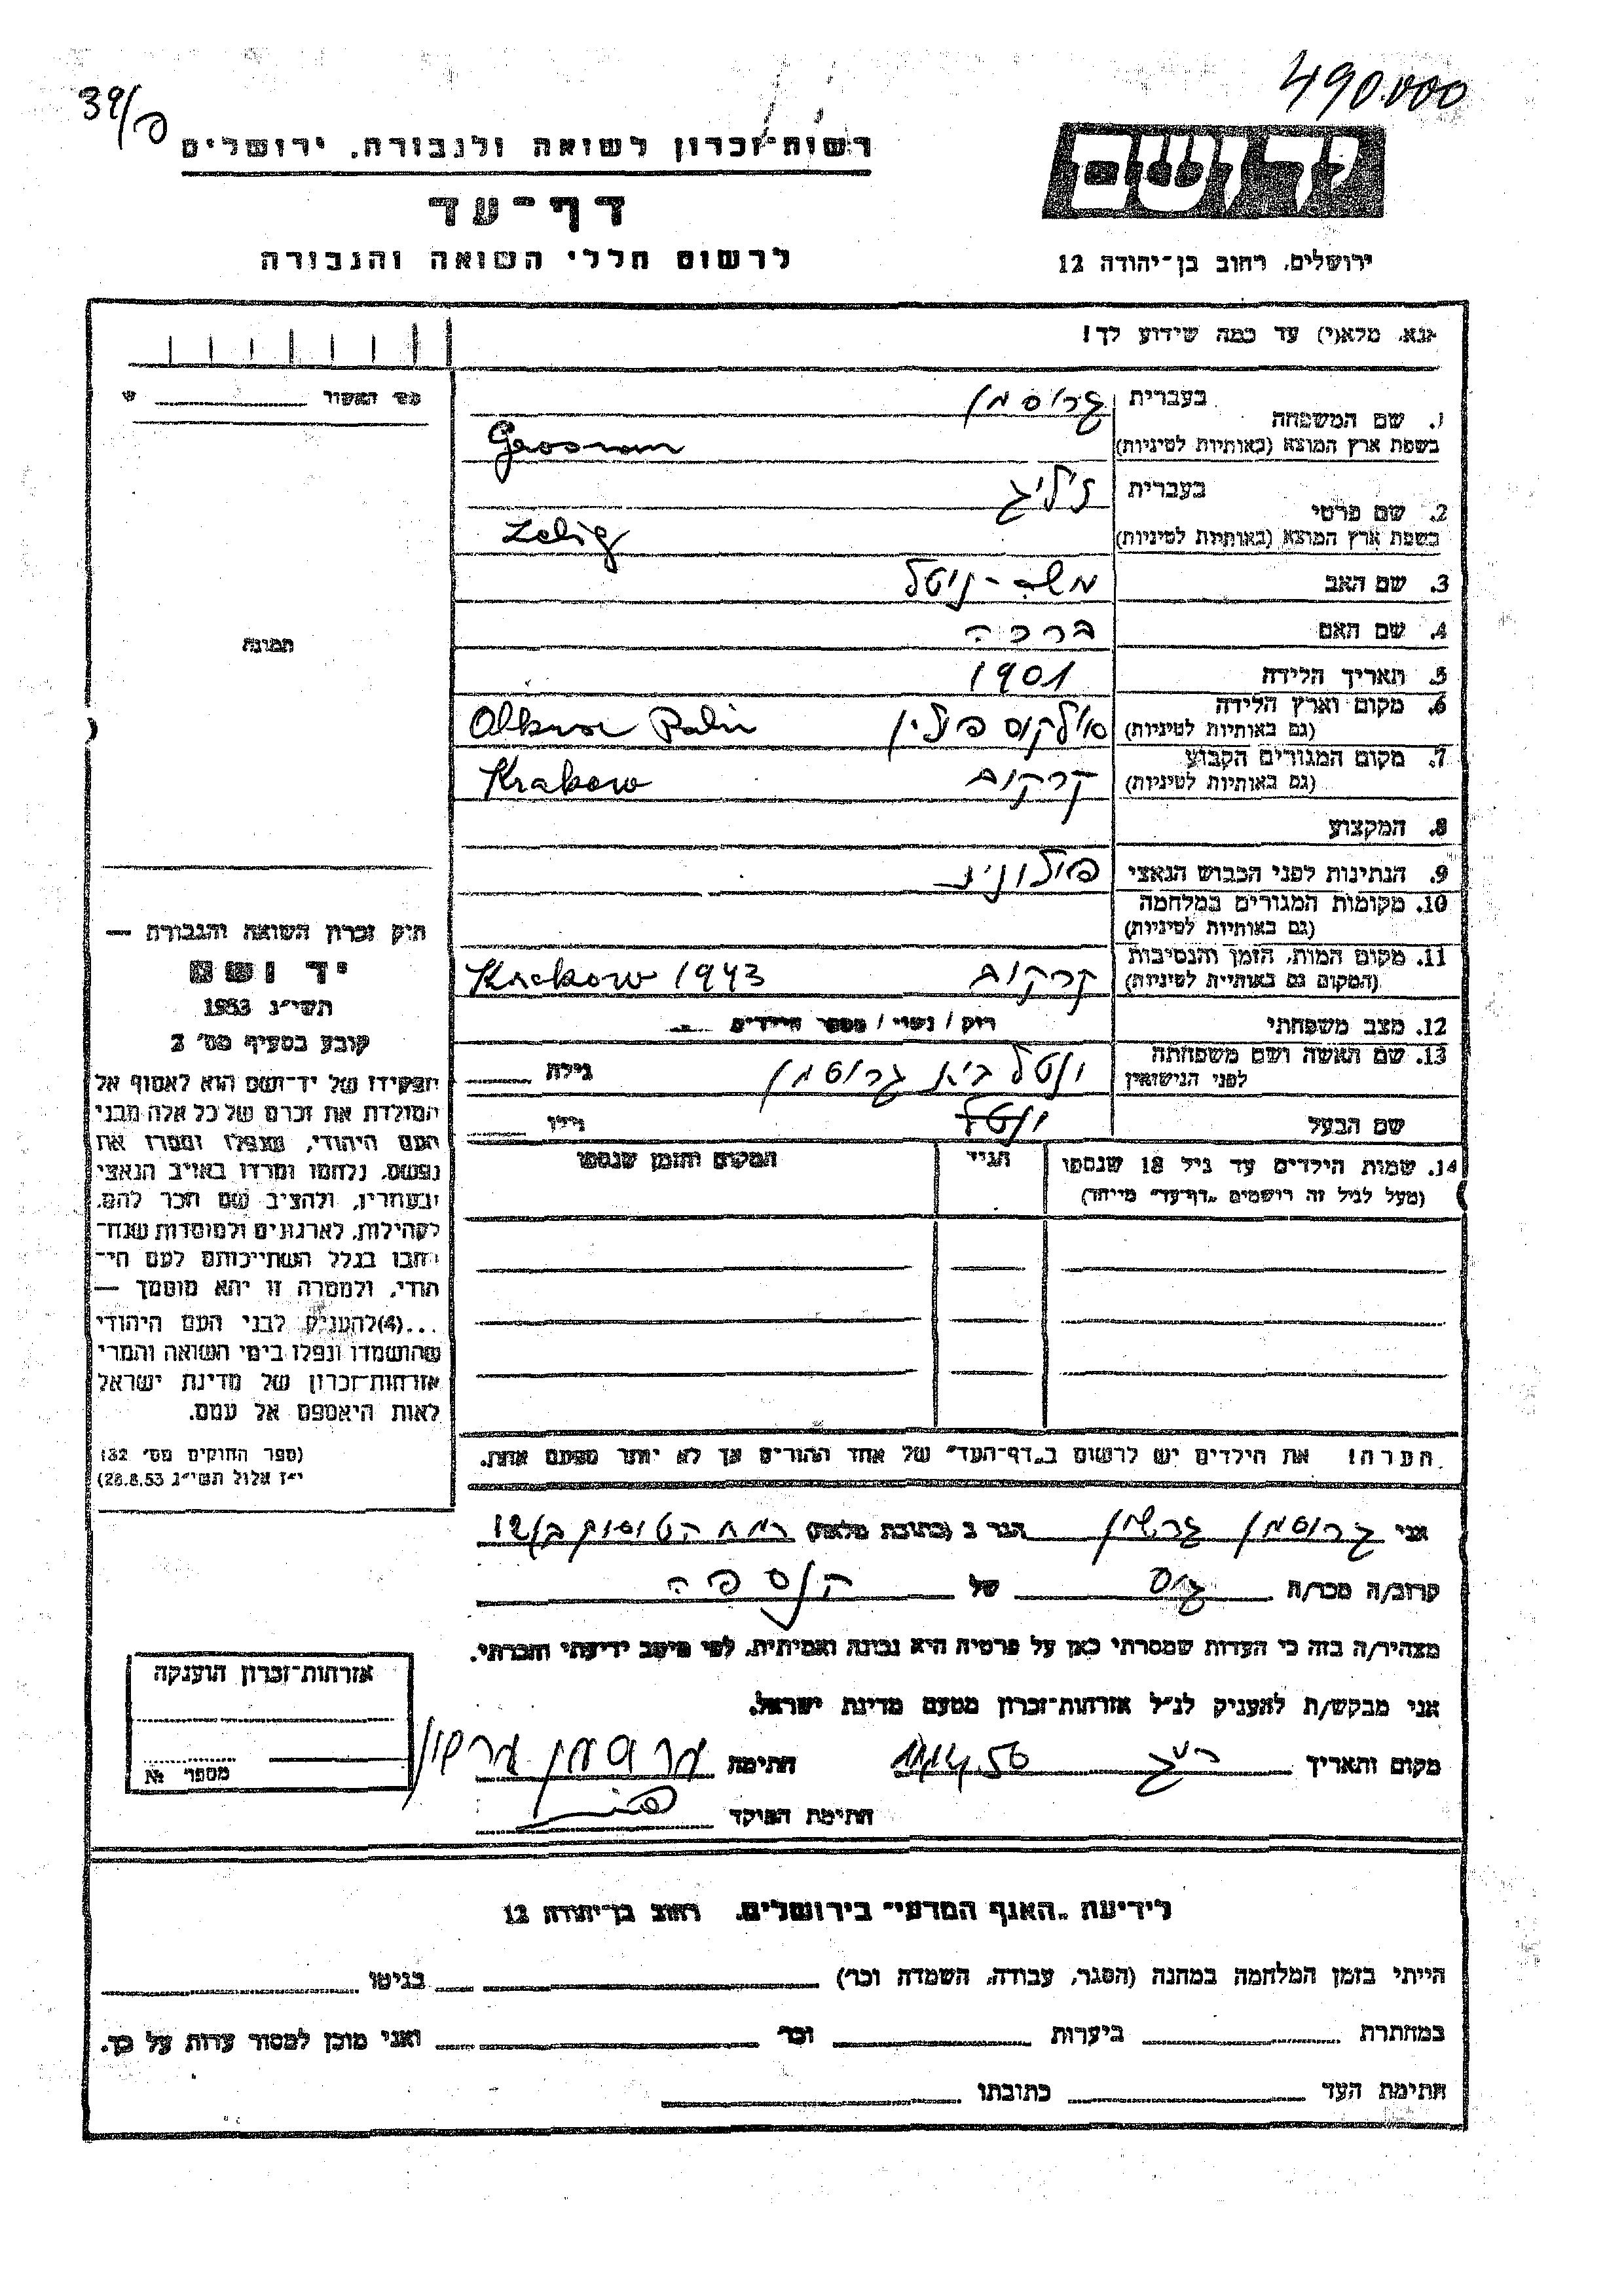 490.000
39/פ
רשות-זכרון לשואה ולגבורה, ירושלים
ידושם
דף-עד
לרשום חללי השואה והגבורה
ירושלים, רחוב בן-יהודה 12
נא, מלא(י) עד כמה שידוע לך!
מס׳ האשור
1. שם המשפחה
בעברית גרוסמן
בשפת ארץ המוצא (באותיות לטיניות) Grosman
2. שם פרטי
בעברית זליג
בשפת ארץ המוצא (באותיות לטיניות) Zelig
3. שם האב משה-
4. שם האם ברכה
5. תאריך הלידה 1901
6. מקום וארץ הלידה אולקוס פולין
(גם באותיות לטיניות)
7. מקום המגורים הקבוע קרקוב Krakow
(גם באותיות לטיניות)
8. המקצוע
9. הנתינות לפני הכבוש הנאצי
10. מקומות המגורים במלחמה
(גם באותיות לטיניות)
11. מקום המות, הזמן והנסיבות קרקוב Krakow 1943
(המקום גם באותיות לטיניות)
12. מצב משפחתי רוק / נשוי / מספר הילדים
13. שם האשה ושם משפחתה גרוסמן גילה
לפני הנישואין
שם הבעל גילו
14. שמות הילדים עד גיל 18 שנספו הגיל המקום והזמן שנספו
(מעל לגיל זה רושמים „דף-עד" מיוחד)
הערה! את הילדים יש לרשום ב„דף-העד" של אחד ההורים אך לא יותר מפעם אחת.
תמונה
חוק זכרון השואה והגבורה —
יד ושם
תשי״ג 1953
קובע בסעיף מס׳ 2
תפקידו של יד-ושם הוא לאסוף אל
המולדת את זכרם של כל אלה מבני
העם היהודי, שנפלו ומסרו את
נפשם, נלחמו ומרדו באויב הנאצי
ובעוזריו, ולהציב שם וזכר להם,
לקהילות, לארגונים ולמוסדות שנח-
רבו בגלל השתייכותם לעם הי-
הודי, ולמטרה זו יהא מוסמך —
...(4)להעניק לבני העם היהודי
שהושמדו ונפלו בימי השואה והמרי
אזרחות-זכרון של מדינת ישראל
לאות היאספם אל עמם.
(ספר החוקים מס׳ 132
י״ז אלול תשי״ג 28.8.53)
אני גרוסמן גרשון הגר ב (כתובת מלאה)
קרוב/ה מכר/ה גיס של הנספה
מצהיר/ה בזה כי העדות שמסרתי כאן על פרטיה היא נכונה ואמיתית, לפי מיטב ידיעתי והכרתי.
אני מבקש/ת להעניק לנ״ל אזרחות-זכרון מטעם מדינת ישראל.
מקום ותאריך חתימה גרוסמן גרשון
חתימת הפוקד
אזרחות-זכרון הוענקה
מספר №
לידיעת „האגף המדעי" בירושלים, רחוב בן-יהודה 12
הייתי בזמן המלחמה במחנה (הסגר, עבודה, השמדה וכו׳) בגיטו
במחתרת ביערות וכו׳ ואני מוכן למסור עדות על כך.
חתימת העד כתובתו